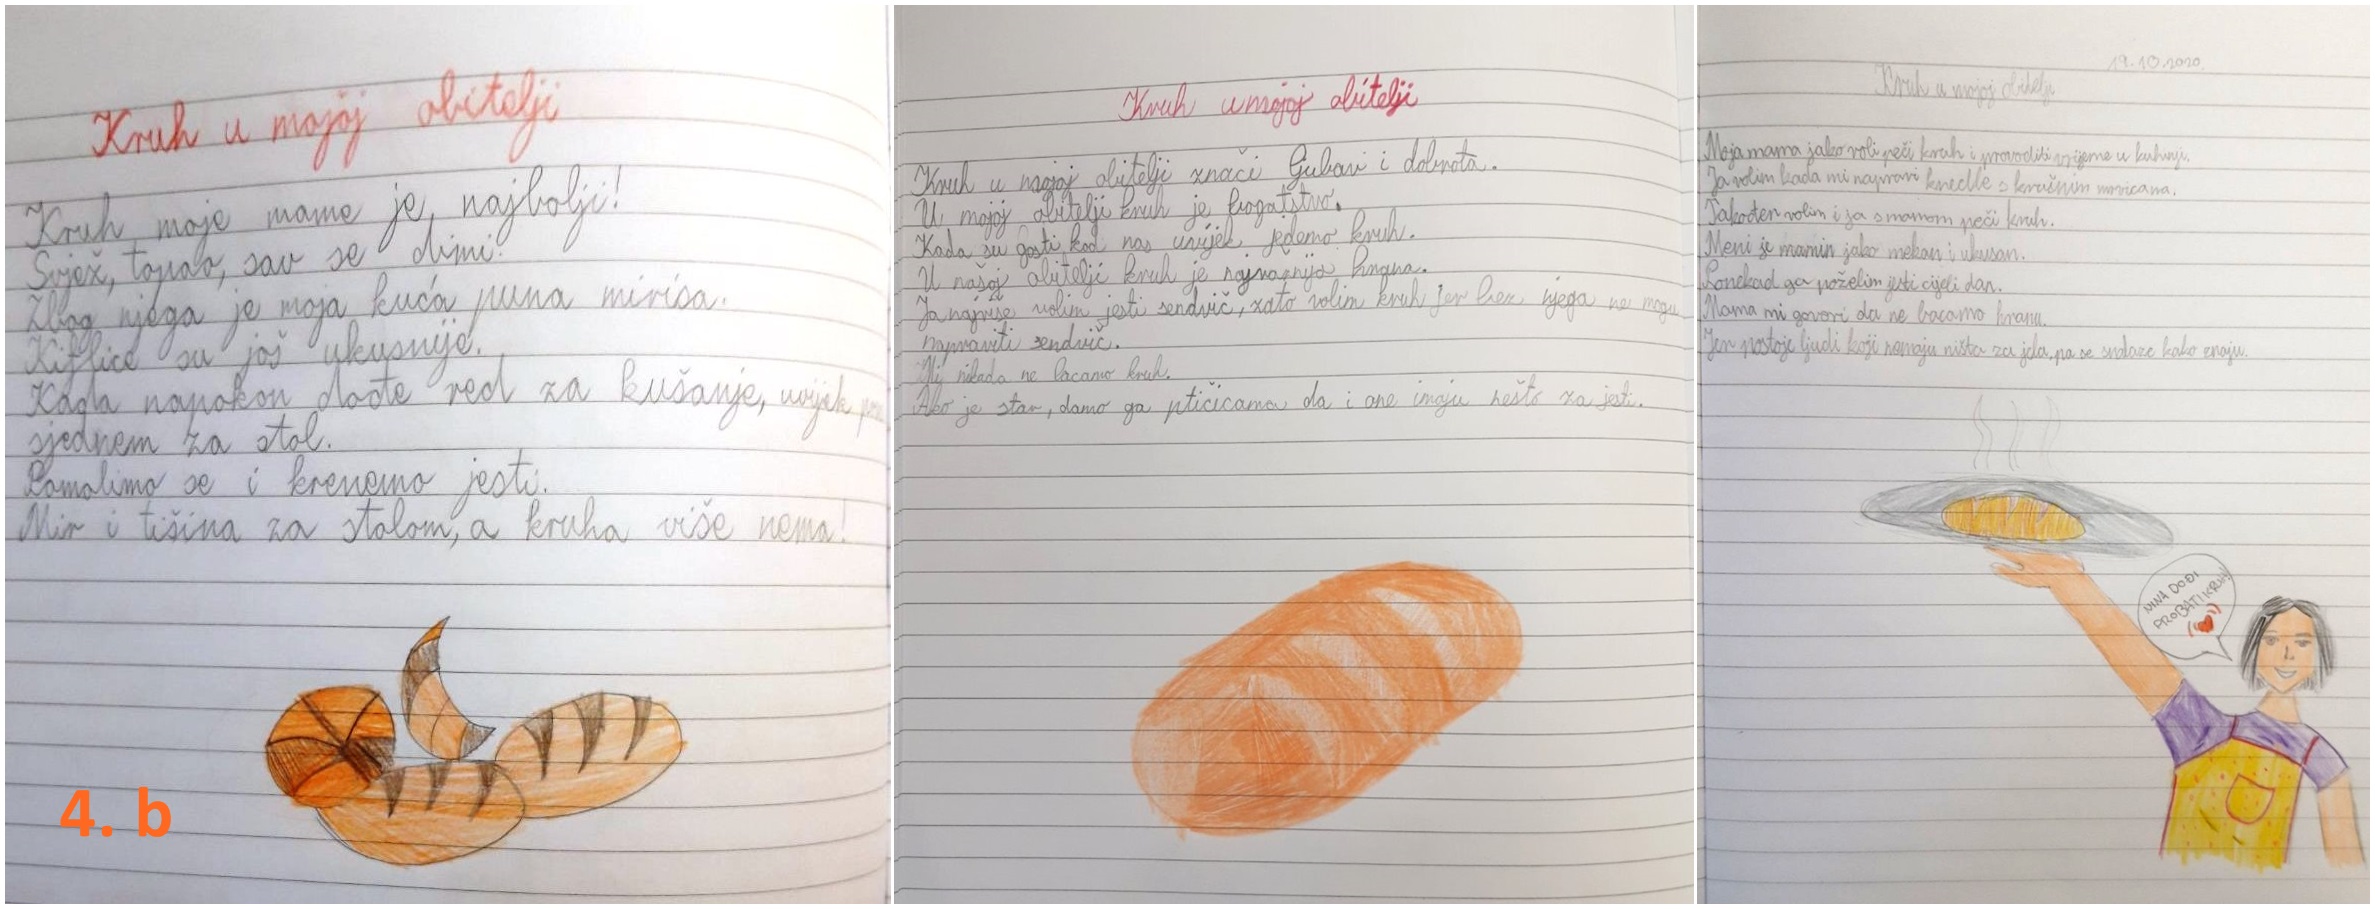 Kruh u mojoj obitelji
Kruh moje mame je najbolji!
Svjež, topao, sav se dimi.
Zbog njega je moja kuća puna mirisa.
Kiflice su još ukusnije.
Kada napokon dođe red za kušanje, uvijek
sjednem za stol.
Pomolimo se i krenemo jesti.
Mir i tišina za stolom, a kruha više nema!
4. b
Kruh u mojoj obitelji
Kruh u mojoj obitelji znači ljubav i dobrota.
U mojoj obitelji kruh je bogatstvo.
Kada su gosti kod nas uvijek jedemo kruh.
U našoj obitelji kruh je hrana.
Ja najviše volim jesti sendvič, zato volim kruh jer bez njega ne mogu
napraviti sendvič.
Mi nikada ne bacamo kruh.
Ako je star, damo ga ptičicama da i one imaju nešto za jesti.
19.10.2020.
Kruh u mojoj obitelji
Moja mama jako voli peći kruh i provoditi vrijeme u kuhinji.
Ja volim kada mi napravi knedle s krušnim mrvicama.
Također volim i ja s mamom peći kruh.
Meni je mamin jako mekan i ukusan.
Ponekad ga poželim jesti cijeli dan.
Mama mi govori da ne bacamo hranu.
Jer postoje ljudi koji nemaju ništa za jela, pa se snalaze kako znaju.
NINA DOĐI
PROBATI KRUH!